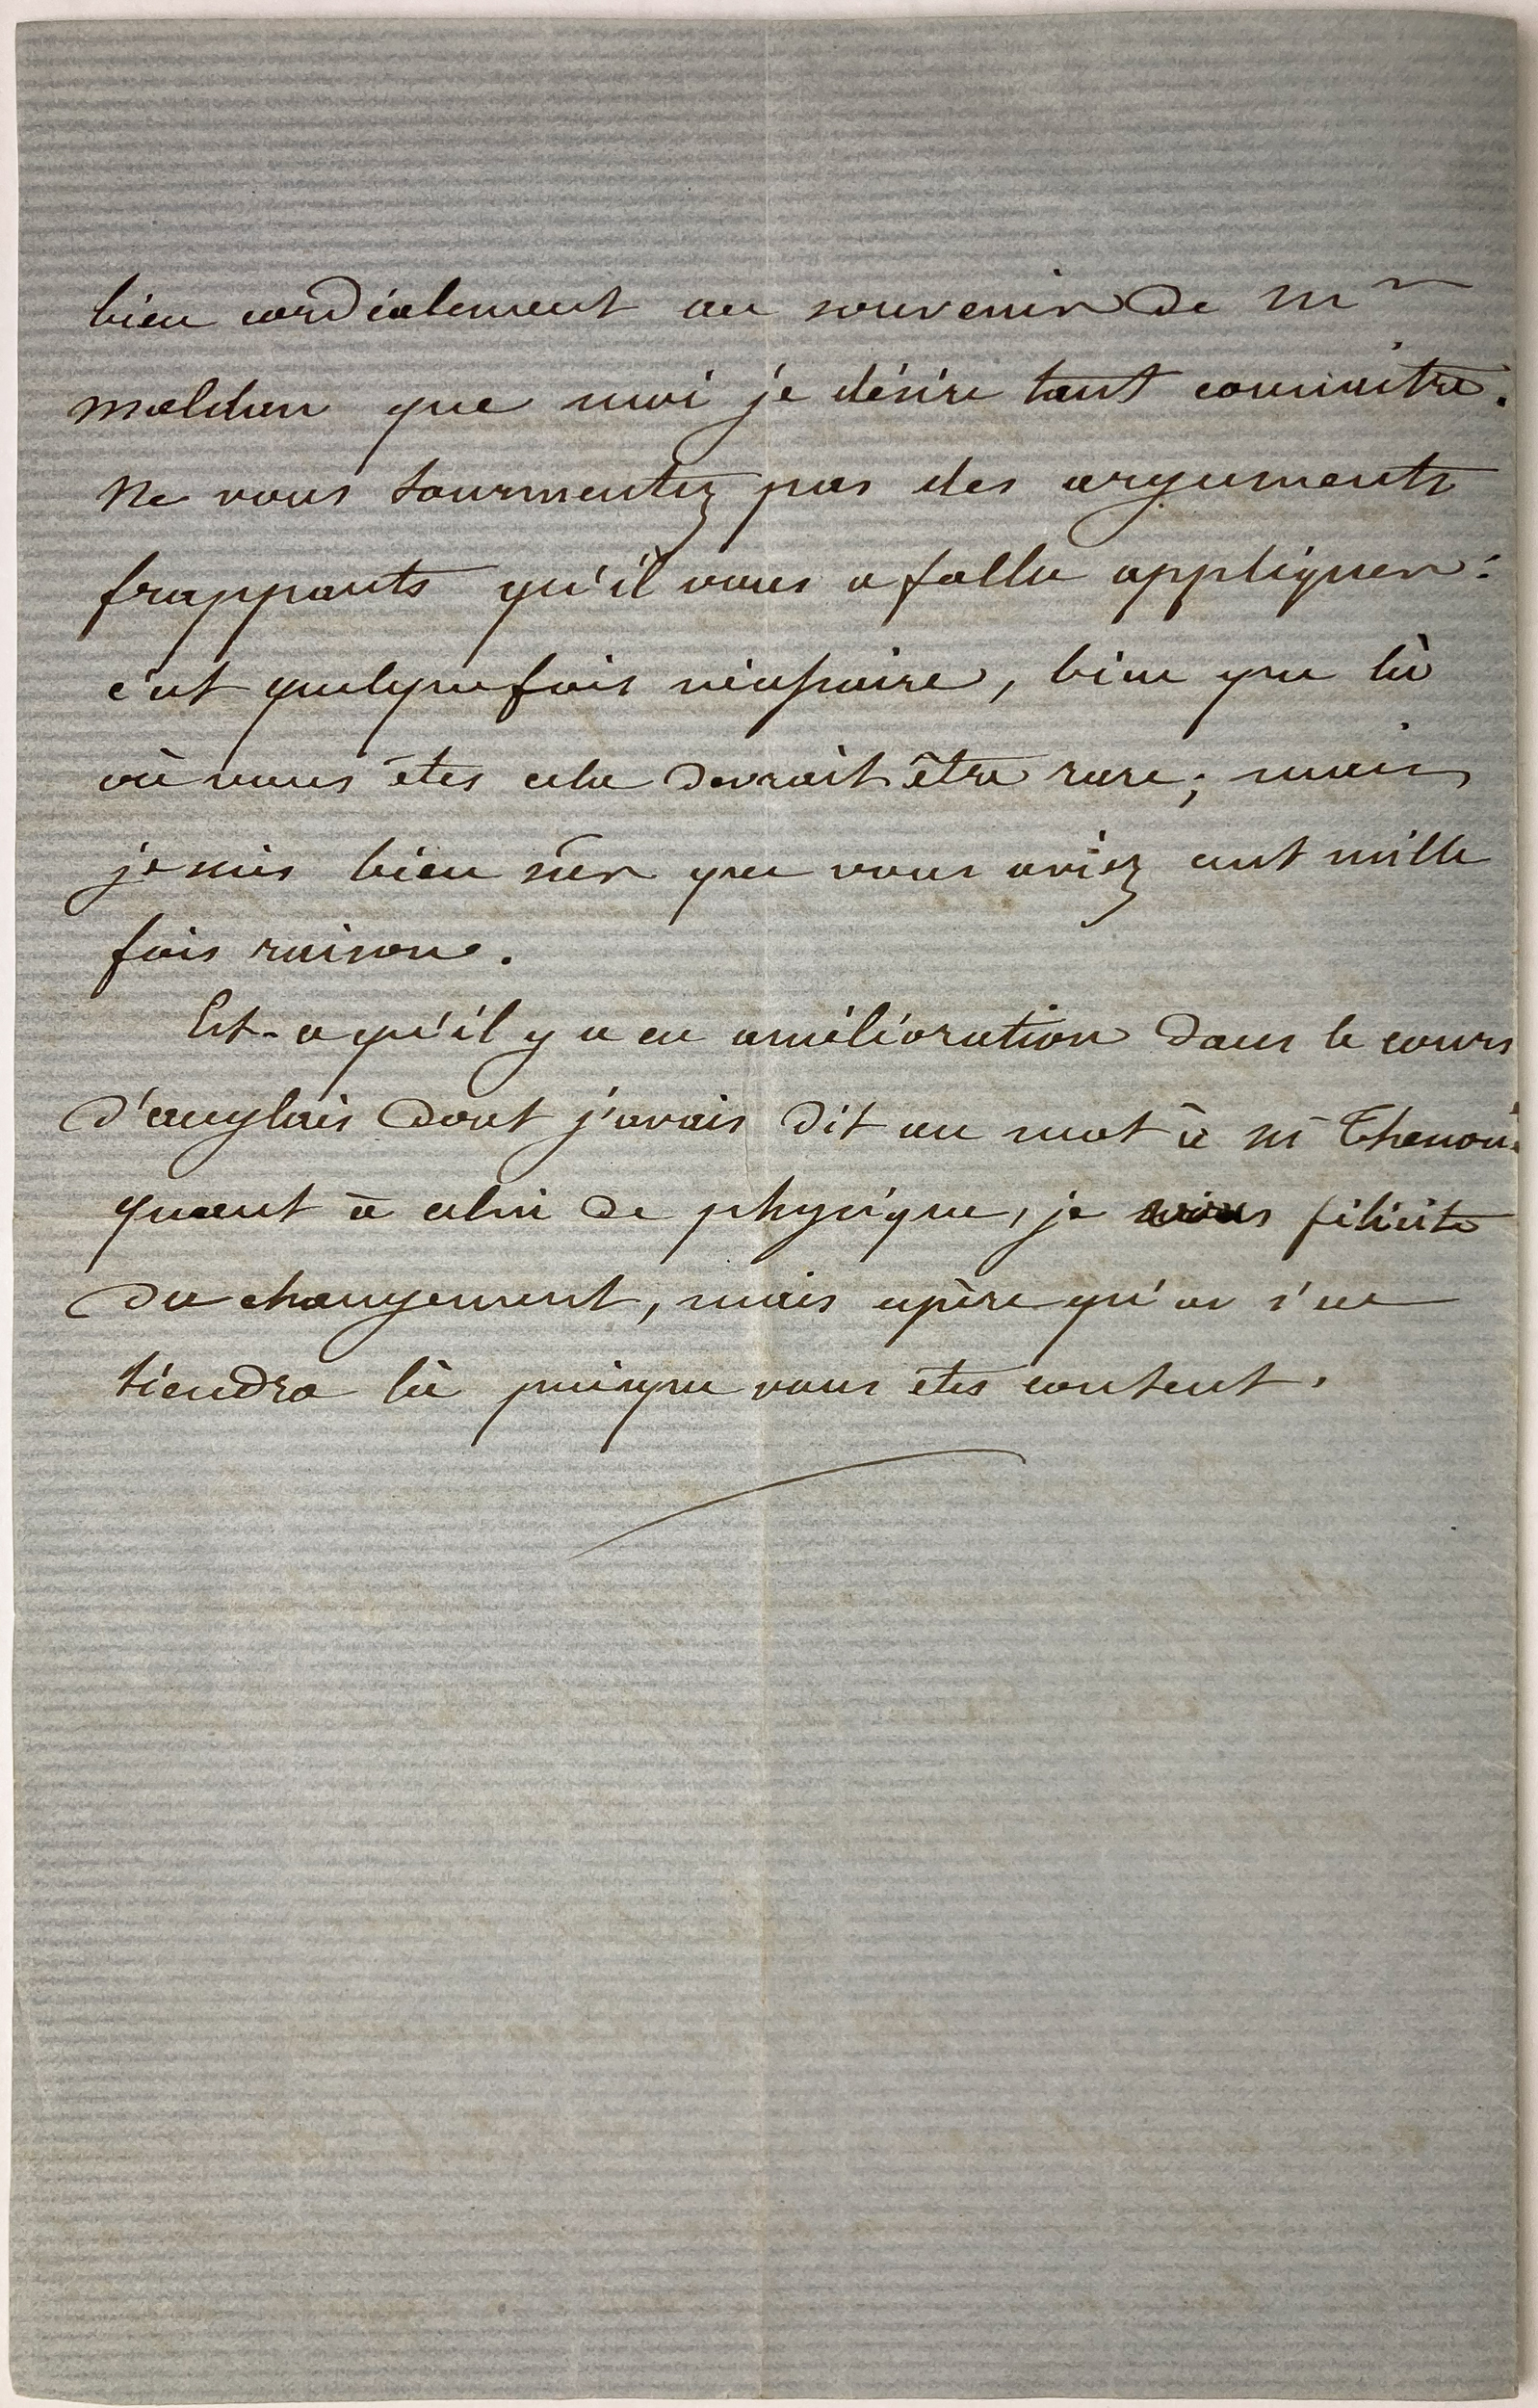 bien cordialement au souvenir de Mr
que moi je désire tant connaitre.
Ne vous tourmentez pas des arguments
frappants qu'il vous a fallu appliquer :
c'est quelquefois nécessaire, bien que là
où vous êtes cela devrait être rare ; mais
je suis bien sûr que vous aviez cent mille
fois raison.
Est-ce qu'il y a eu amélioration dans le cours
d'anglais dont j'avais dit un mot à Mr
quant à celui de physique, je vous félicite
du changement, mais espère qu'on s'en
tiendra là puisque vous êtes content.